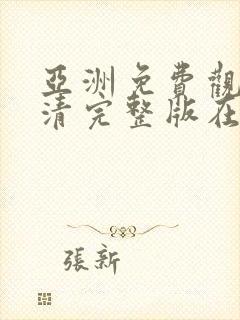 亞洲免費觀
清完整版在
張新